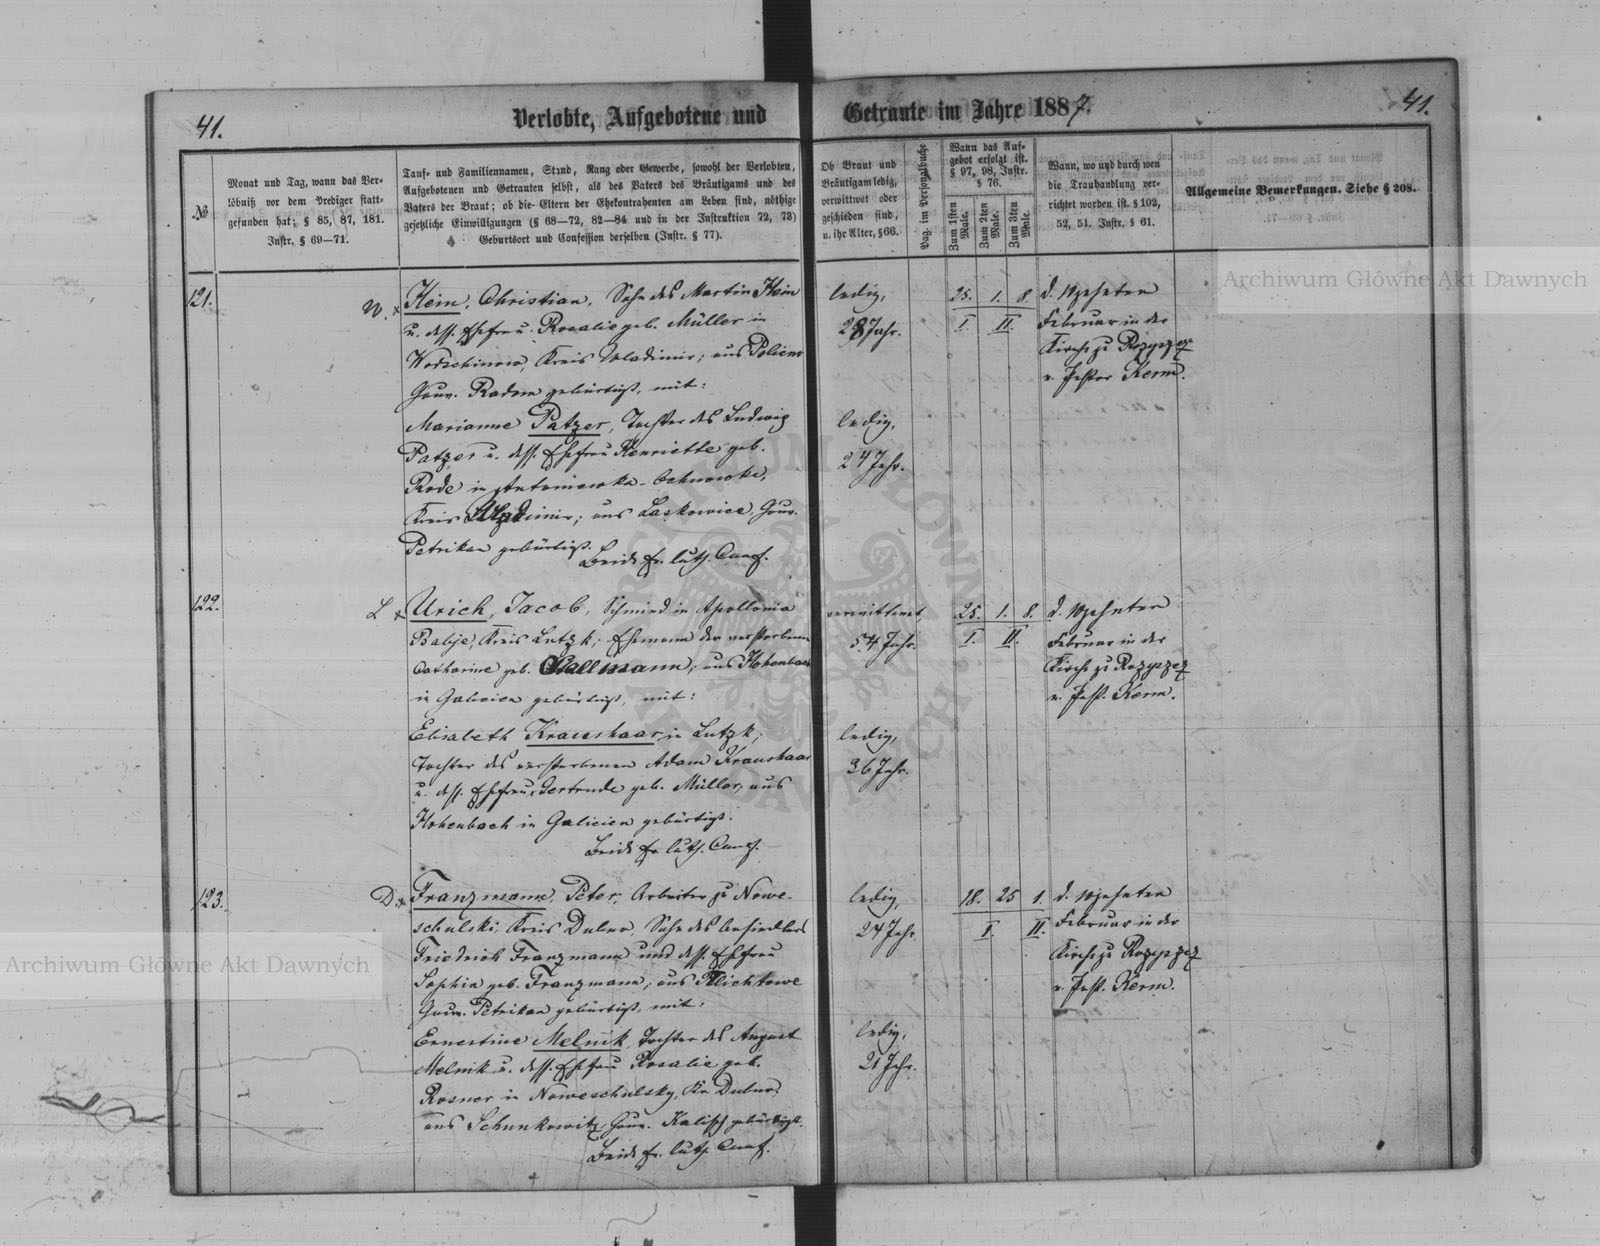 41.
Verlobte, Aufgebotene und
Getraute im Jahre 1887.
41.
№
Monat und Tag, wann das Ver-
löbniß vor dem Prediger statt-
gefunden hat; § 85, 87, 181.
Instr. § 69—71.
Tauf- und Familiennamen, Stand, Rang oder Gewerbe, sowohl der Verlobten,
Aufgebotenen und Getrauten selbst, als des Vaters des Bräutigams und des
Vaters der Braut; ob die Eltern der Ehekontrahenten am Leben sind, nöthige
gesetzliche Einwilligungen (§ 68—72, 82—84 und in der Instruktion 72, 73)
Geburtsort und Confession derselben (Instr. § 77).
Ob Braut und
Bräutigam ledig,
verwittwet oder
geschieden sind,
u. ihr Alter, § 66.
Pag. im Personalbuche
Wann das Auf-
gebot erfolgt ist.
§ 97, 98, Instr.
§ 76.
Zum 1sten Male.
Zum 2ten Male.
Zum 3ten Male.
Wann, wo und durch wen
die Trauhandlung ver-
richtet worden ist. § 102,
52, 51. Instr. § 61.
Allgemeine Bemerkungen. Siehe § 208.
121.
W. x
Hein, Christian, Sohn des Martin Hein
u. dess. Ehefrau Rosalie geb. Müller in
Kreis Wladimir; aus
Gouv. Radom gebürtigt, mit:
Marianne Patzer, Tochter des Ludwig
Patzer u. dess. Ehefrau Henriette geb.
Rode in Antonowka-
Kreis Wladimir; aus Laskowice, Gouv.
Petrikau gebürtigt.
Beide ev. luth. Conf.
ledig,
28 Jahr.
ledig,
24 Jahr.
25. 1. 8.
I. II.
d. Achten
Februar in der
Kirche zu Rozyszcz
v. Pastor Kerm.
122.
L x
Urich, Jacob, Schmied in Apollonia
Kreis Lutzk; Ehemann der verstorbenen
Catharine geb. aus Hohenbach
in Galicien gebürtigt, mit:
Elisabeth Kraushaar, in Lutzk,
Tochter des verstorbenen Adam Kraushaar
u. dess. Ehefrau Gertrude geb. Müller, aus
Hohenbach in Galicien gebürtigt.
Beide ev. luth. Conf.
verwittwet,
54 Jahr.
ledig,
36 Jahr.
25. 1. 8.
I. II.
d. Achten
Februar in der
Kirche zu Rozyszcz
v. Past. Kerm.
123.
D. x
Franzmann, Peter, Arbeiter zu Nowe-
schulski, Kreis Dubno, Sohn des Ansiedlers
Friedrich Franzmann und dess. Ehefrau
Sophia geb. Franzmann, aus
Gouv. Petrikau gebürtigt, mit:
Ernestine Melnik, Tochter des August
Melnik u. dess. Ehefrau Rosalie geb.
Rosner in Noweschulsky, Kr. Dubno,
aus Schunkowitz, Gouv. Kalisch gebürtigt.
Beide ev. luth. Conf.
ledig,
24 Jahr.
ledig,
21 Jahr.
18. 25 1.
I. II.
d. Achten
Februar in der
Kirche zu Rozyszcz
v. Past. Kerm.
Archiwum Główne Akt Dawnych
Archiwum Główne Akt Dawnych